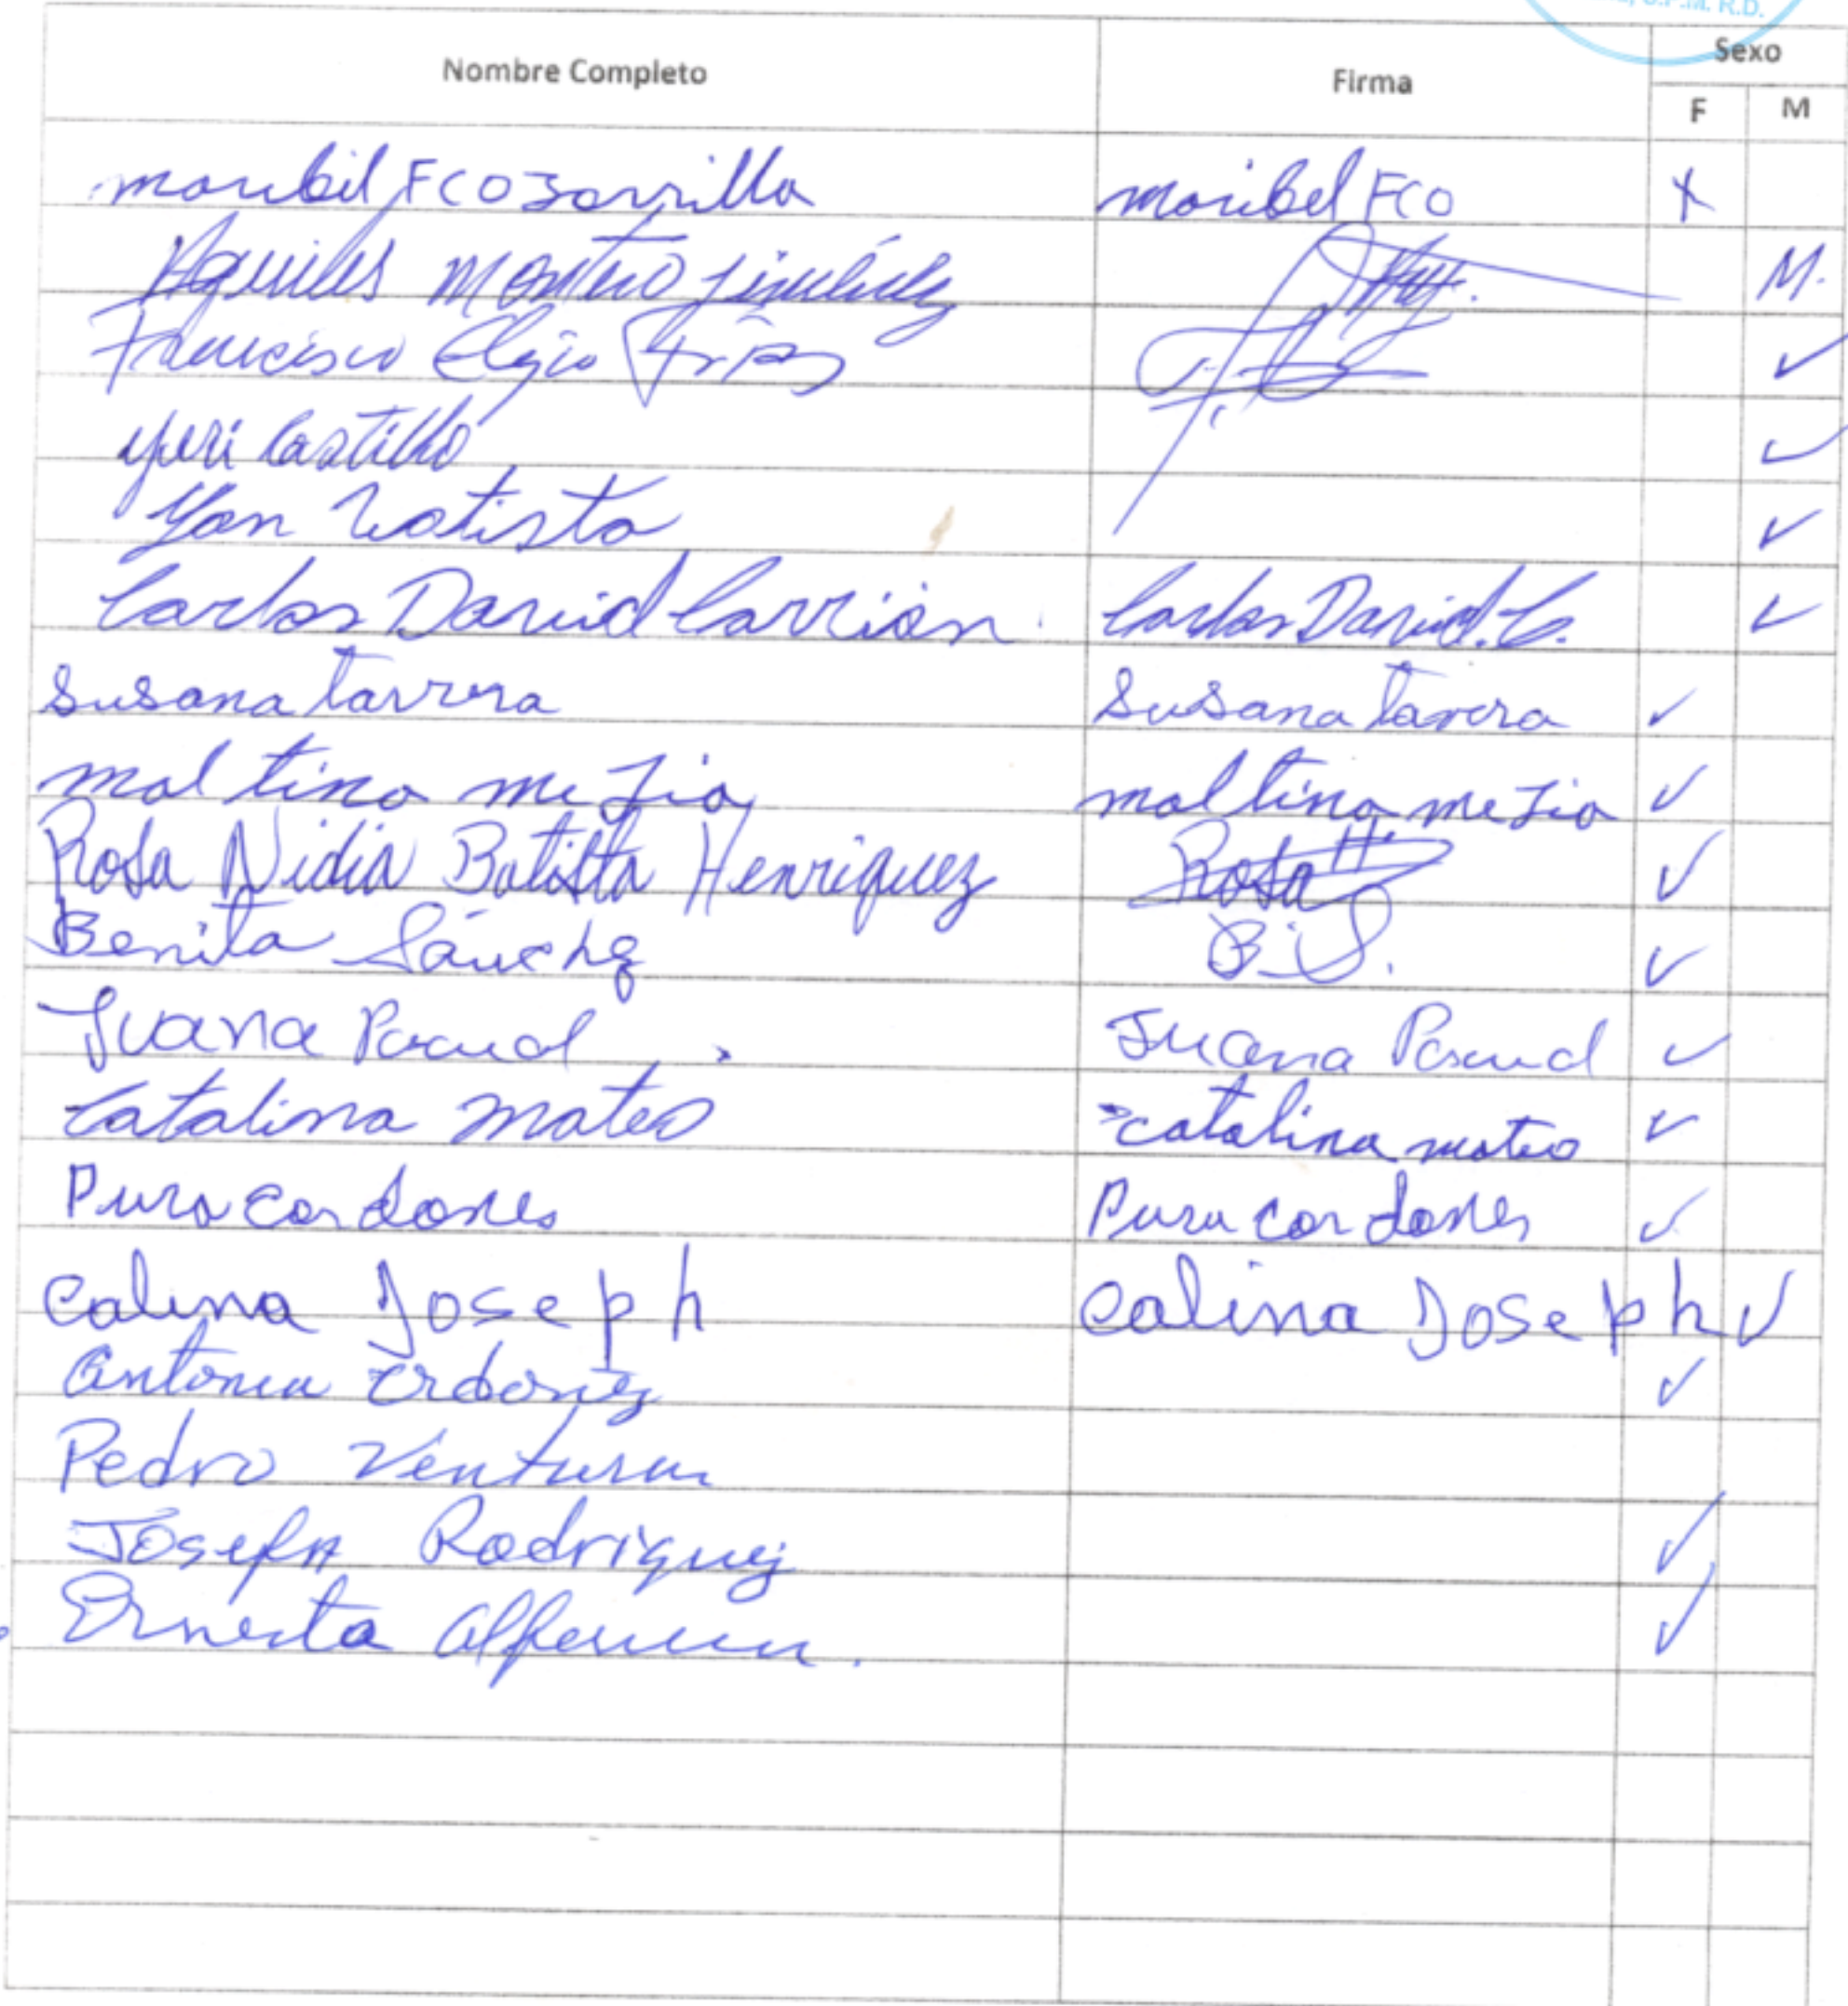 S.P.M. R.D.
Nombre Completo Firma Sexo
F M
maribil FCO Zorrilla maribel FCO X
Aquiles Montero M.
Francisco Eligio ✓
yuri Castillo ✓
Yan Batista ✓
Carlos David Carrión. Carlos David. C. ✓
Susana tavrera Susana tavera ✓
mal tina me Jia maltina me Jia ✓
Rosa Nidia Batista Henriquez Rosa H. ✓
Benita Sánchez B.S. ✓
Juana Pacual Juana Pascual ✓
Catalina mateo catalina mateo ✓
Pura cordones Pura cordones ✓
Calina Joseph Calina Joseph ✓
Antonia Ordoñez ✓
Pedro Ventura
Josefa Rodriguez ✓
Ernesta ✓